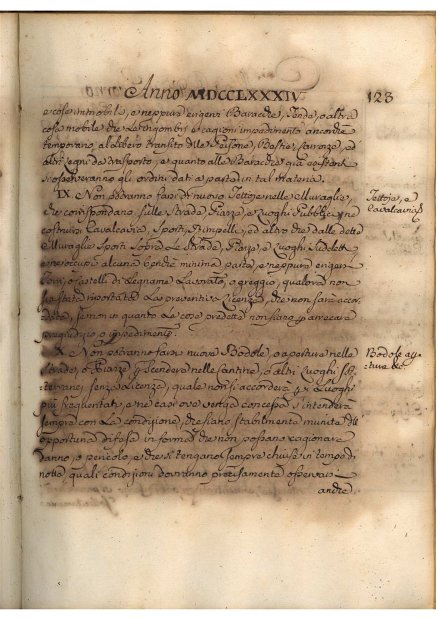 Anno MDCCLXXXIV
123
e cosa immobile, e neppure erigere Baracche, Tende, o altra
cosa mobile che Le ingombri e cagioni impedimento ancorche
temporaneo, al libero transito delle Persone, Bestie, Carozze, ed
altri legni da trasporto, e quanto alle Baracche già esistenti
si osserveranno gli ordini dati a parte in tal materia.
IX. Non potranno farsi di nuovo Tettoje nelle Muraglie,
che corrispondano sulle Strade, Piazze, e Luoghi Pubblici, ne
costruire Cavalcavie, Sporti, ed altro che dalle dette
Muraglie Sporti Sopra Le Strade, Piazze, e Luoghi Sudetti
e ne occupi alcuna benche minima parte, e neppure erigere
o Castelli di Legname Lavorato, o greggio, qualora non
sia stata riportata La preventiva Licenza, che non sarà accor
data, se non in quanto Le cose predette non siano per arecare
pregiudizio o impedimento.
Tettoje, e
Cavalcavie
X. Non potranno farsi nuove Bodole, o aperture nelle
Strade, o Piazze per scendere nelle Cantine, o altri Luoghi Sot
terranei senza Licenza, quale non si accorderà per Luoghi
più frequentati, e ne casi ove venga concessa s'intenderà
sempre con La condizione, che siano stabilmente munite di
opportuna difesa in forma che non possano cagionare
danno, o pericolo, e che si tengano sempre chiuse in tempo di
notte, quali condizioni dovranno precisamente osservarsi
anche
Bodole aper
ture &c.